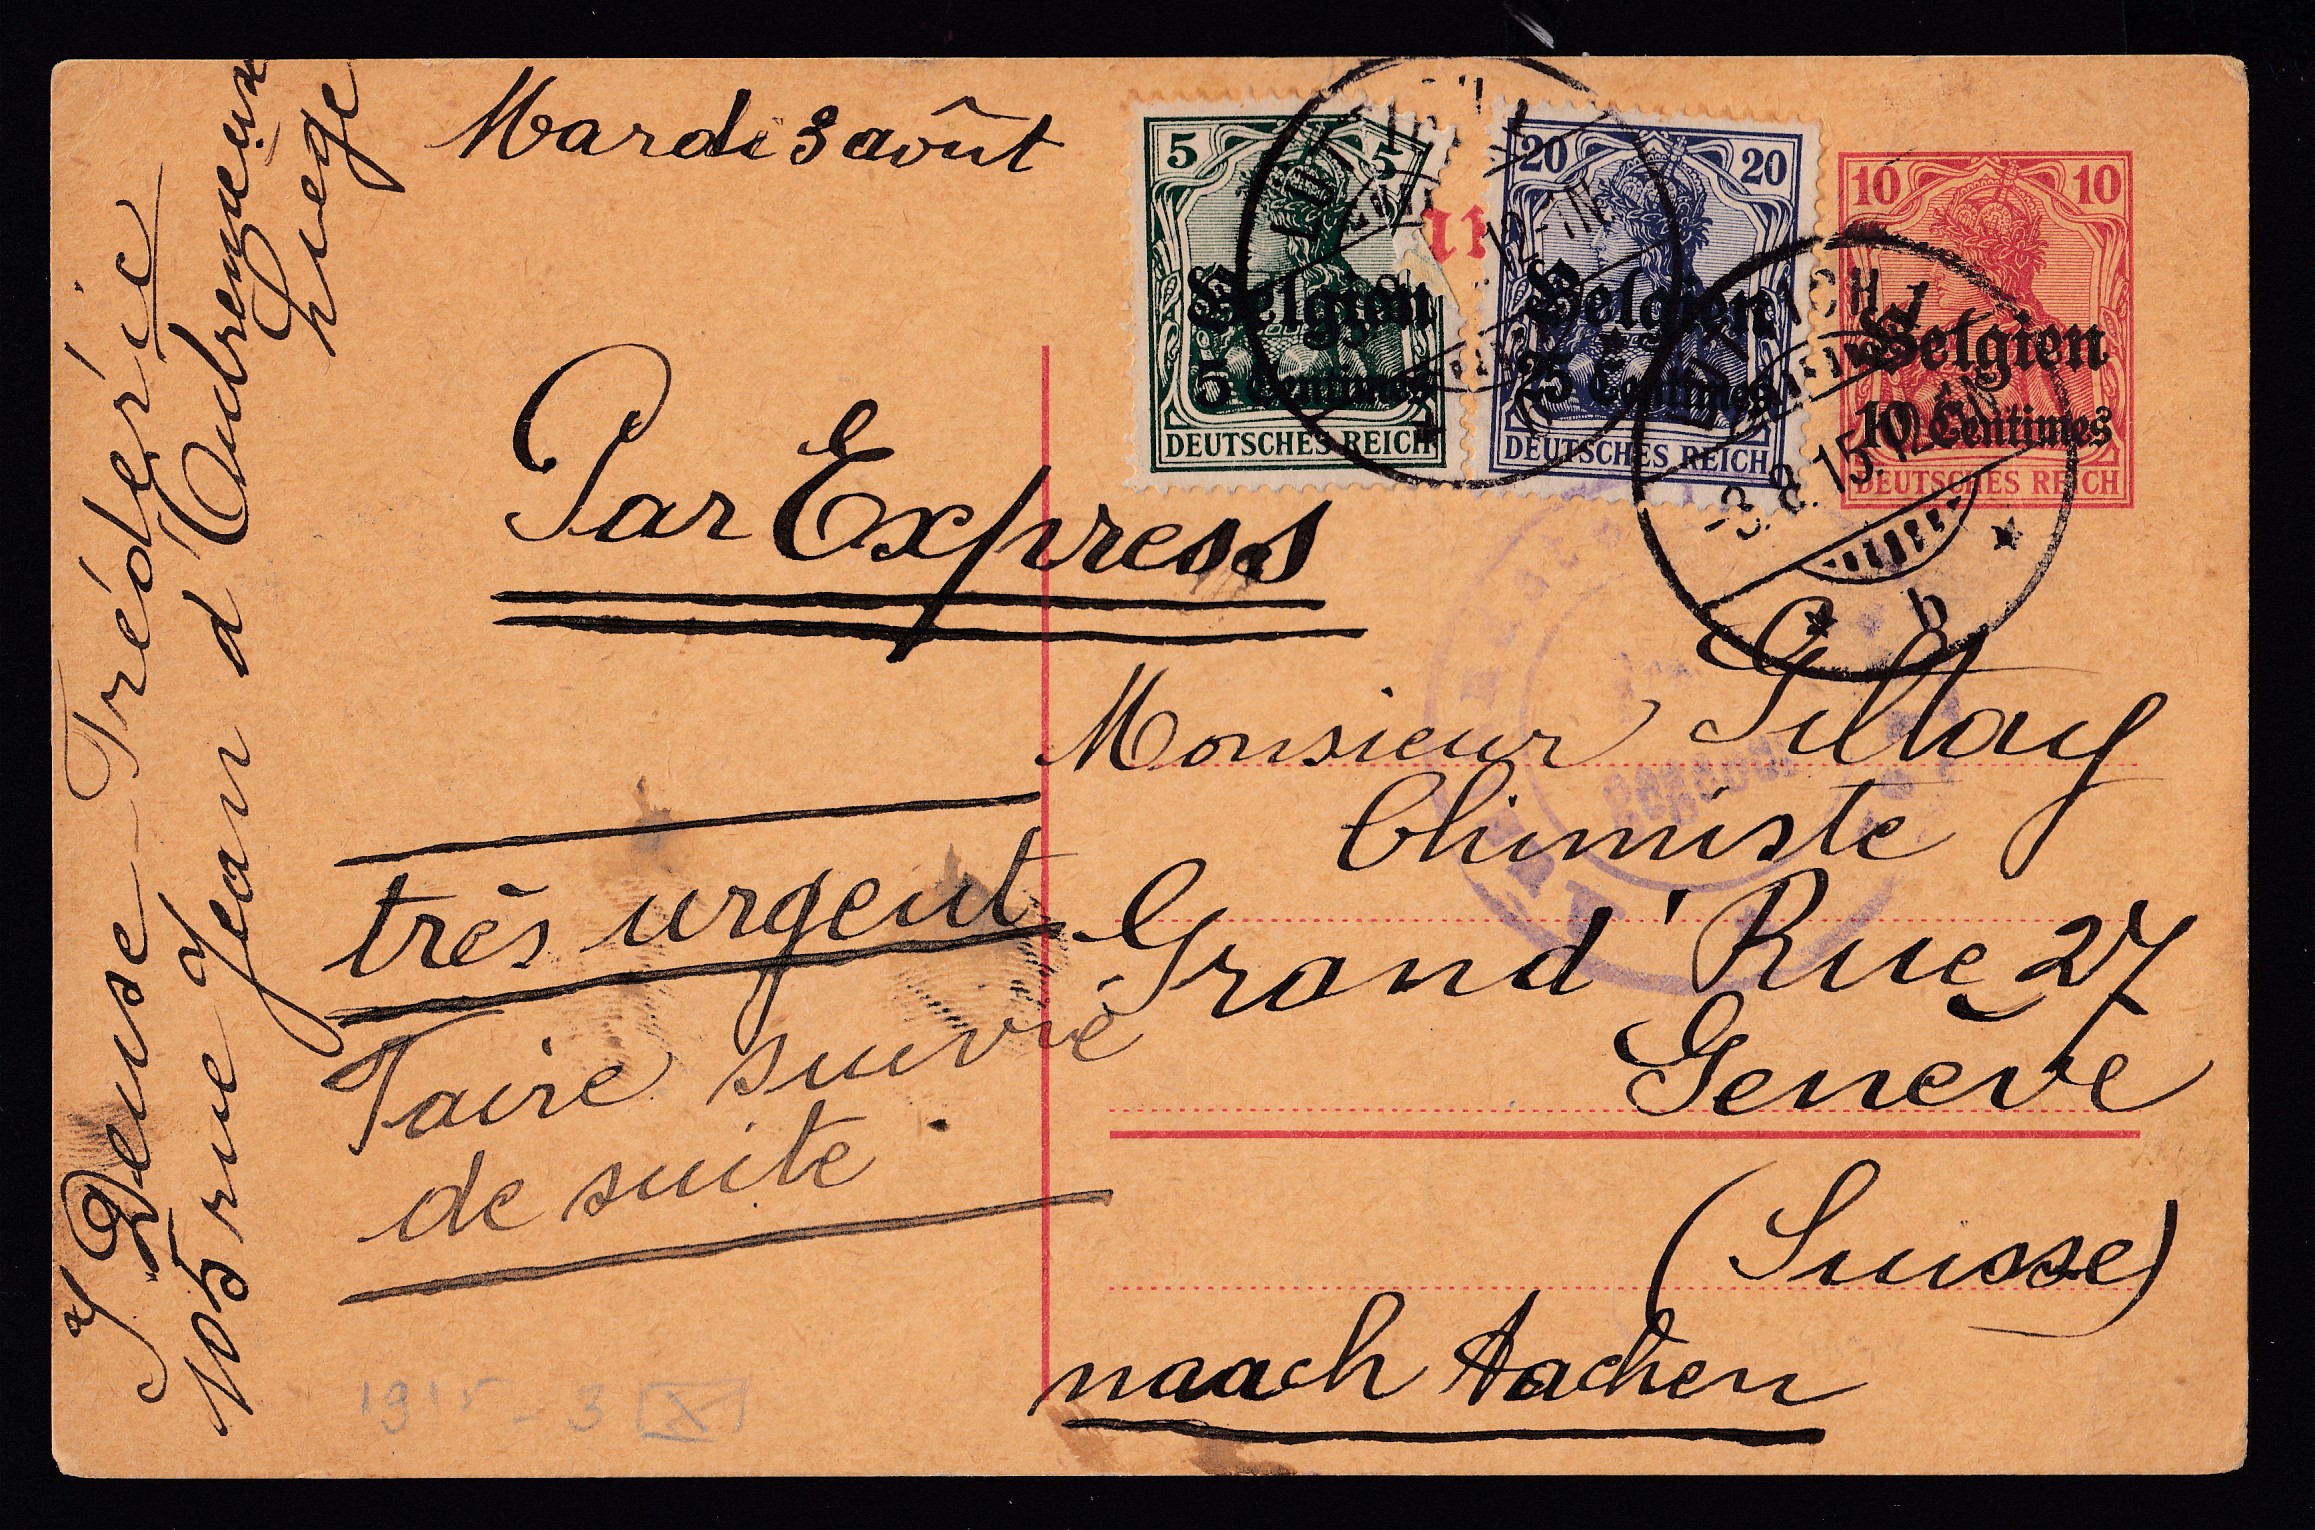 Mardi 3 août
5 5
Belgien
5 Centimes
DEUTSCHES REICH
20 20
Belgien
25 Centimes
DEUTSCHES REICH
10 10
Belgien
10 Centimes
DEUTSCHES REICH
LÜTTICH 1
12-1N
LÜTTICH 1
-3.8.15.12-1N
* b *
Par Express
Monsieur Giltay
Chimiste
Grand' Rue 27
Genève
(Suisse)
naach Aachen
très urgent
Faire suivre
de suite
1915 - 3
J Deuse-Fréderic
105 rue Jean d'Outremeuse
Liege